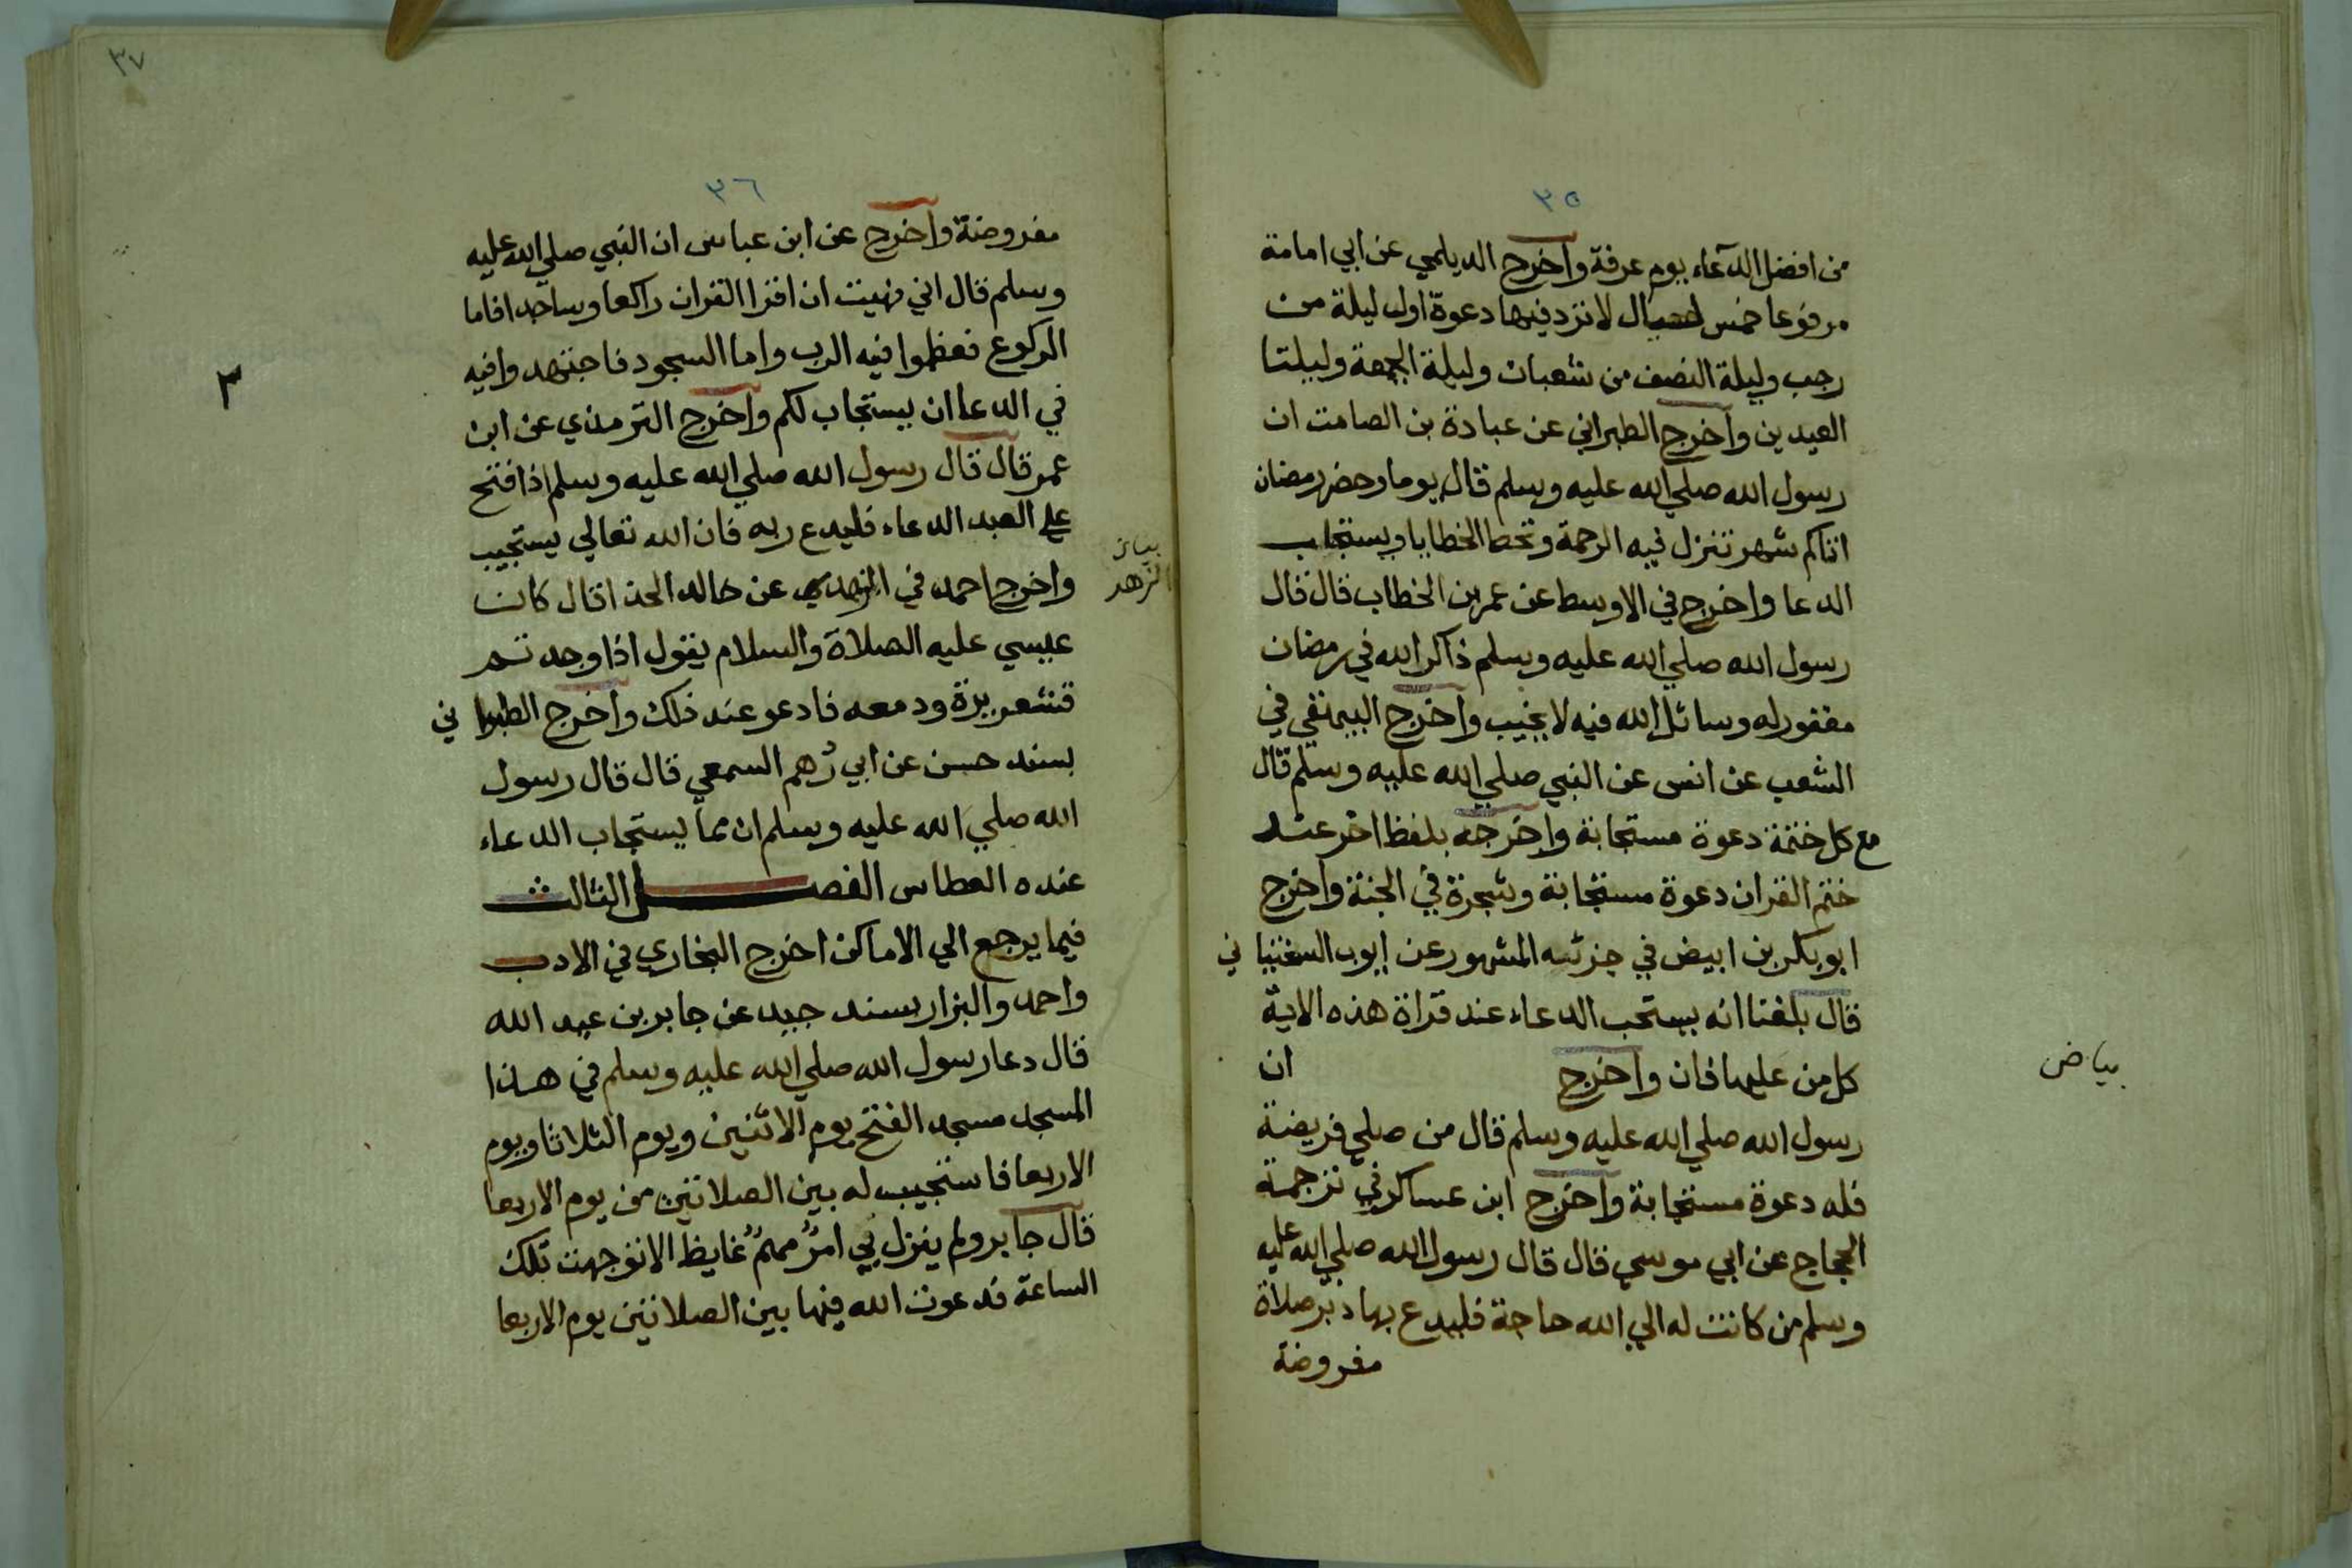 ٣٥
من افضل الدآعاء يوم عرفة واخرج الديلمي عن ابي امامة
مرفوعا خمس ليال لا ترد فيها دعوة اول ليلة من
رجب وليلة النصف من شعبان وليلة الجمعة وليلتا
العيدين واخرج الطبراني عن عبادة بن الصامت ان
رسول الله صلي الله عليه وسلم قال يوما وحضر رمضان
اتاكم شهر تنزل فيه الرحمة وتحط الخطايا ويستجاب
الدعا واخرج في الاوسط عن عمر بن الخطاب قال قال
رسول الله صلي الله عليه وسلم ذاكر الله في رمضان
مغفور له وسائل الله فيه لا يخيب واخرج البيهقي في
الشعب عن انس عن النبي صلي الله عليه وسلم قال
مع كل ختمة دعوة مستجابة واخرجه بلفظ اخر عند
ختم القران دعوة مستجابة وشجرة في الجنة واخرج
ابو بكر بن ابيض في جزئه المشهور عن ايوب السختيا ني
قال بلغنا انه يستحب الدعاء عند قراة هذه الاية
كل من عليها فان واخرج ان
بياض
رسول الله صلي الله عليه وسلم قال من صلي فريضة
فله دعوة مستجابة واخرج ابن عساكر في ترجمة
الحجاج عن ابي موسي قال قال رسول الله صلي الله عليه
وسلم من كانت له الي الله حاجة فليدع بها دبر صلاة
مفروضة
٣٧
٣٦
مفروضة واخرج عن ابن عباس ان النبي صلي الله عليه
وسلم قال اني نهيت ان اقرا القران راكعا وساجدا فاما
الركوع فعظموا فيه الرب واما السجود فاجتهدوا فيه
٢
في الدعا ان يستجاب لكم واخرج الترمذي عن ابن
عمر قال قال رسول الله صلي الله عليه وسلم اذا فتح
علي العبد الدعاء فليدع ربه فان الله تعالي يستجيب
الزهد
واخرج احمد في عن خالد الحذا قال كان
عيسي عليه الصلاة والسلام يقول اذا وجدتم
قشعريرة ودمعه فادعو عند ذلك واخرج الطبرا ني
بسند حسن عن ابي رُهم السمعي قال قال رسول
الله صلي الله عليه وسلم ان مما يستجاب الدعاء
عنده العطاس الفصل الثالث
فيما يرجع الي الاماكن اخرج البخاري في الادب
واحمد والبزار بسند جيد عن جابر بن عبد الله
قال دعا رسول الله صلي الله عليه وسلم في هذا
المسجد مسجد الفتح يوم الاثنين ويوم الثلاثا ويوم
الاربعا فاستجيب له بين الصلاتين من يوم الاربعا
قال جابر ولم ينزل بي امرٌ مهمٌ غايظ الا توجهت تلك
الساعة فدعوت الله فيها بين الصلاتين يوم الاربعا